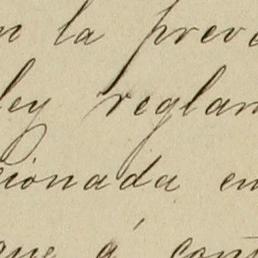 n la prev
ley reglam
cionada en
que á cont